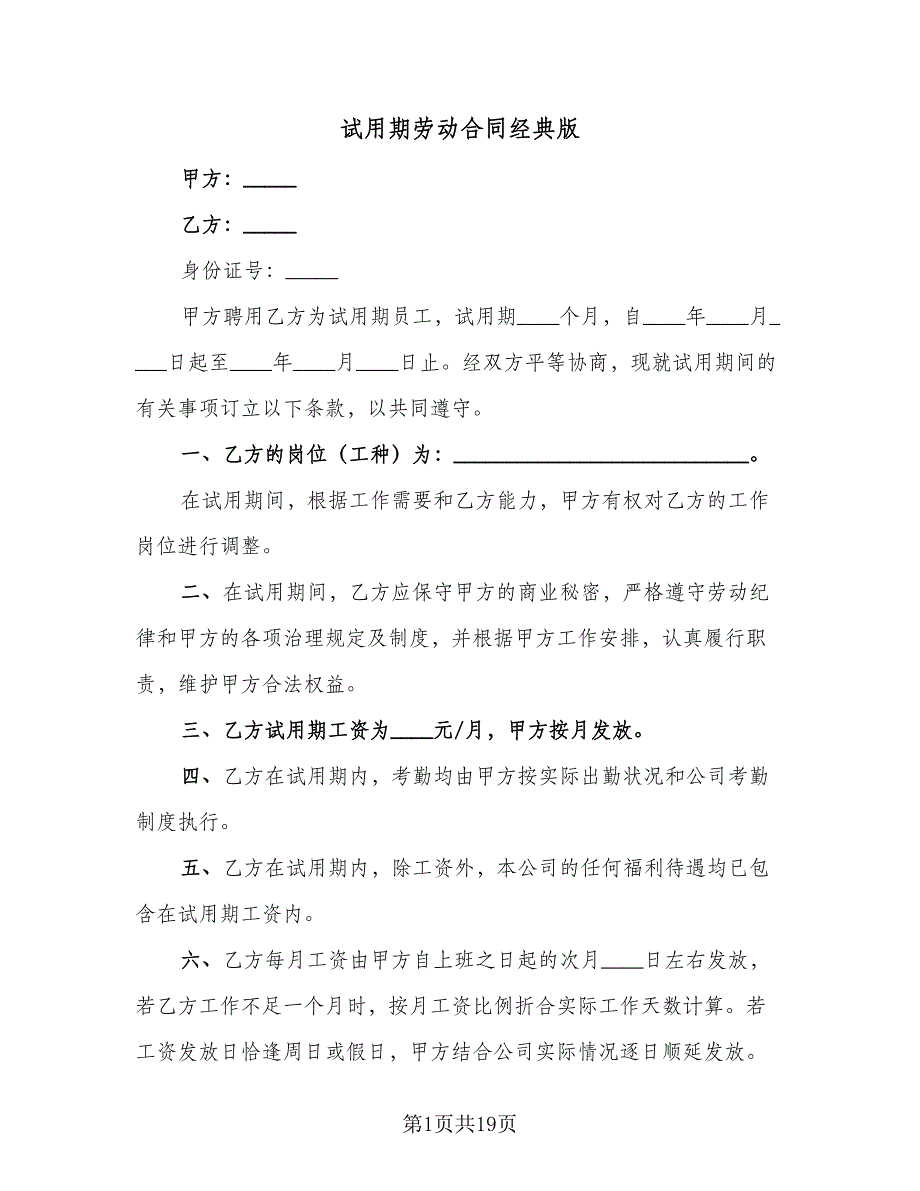 试用期劳动合同经典版
甲方：_____
乙方：_____
身份证号：_____
甲方聘用乙方为试用期员工，试用期____个月，自____年____月_
___日起至____年____月____日止。经双方平等协商，现就试用期间的
有关事项订立以下条款，以共同遵守。
一、乙方的岗位（工种）为：____________________________。
在试用期间，根据工作需要和乙方能力，甲方有权对乙方的工作
岗位进行调整。
二、在试用期间，乙方应保守甲方的商业秘密，严格遵守劳动纪
律和甲方的各项治理规定及制度，并根据甲方工作安排，认真履行职
责，维护甲方合法权益。
三、乙方试用期工资为____元/月，甲方按月发放。
四、乙方在试用期内，考勤均由甲方按实际出勤状况和公司考勤
制度执行。
五、乙方在试用期内，除工资外，本公司的任何福利待遇均已包
含在试用期工资内。
六、乙方每月工资由甲方自上班之日起的次月____日左右发放，
若乙方工作不足一个月时，按月工资比例折合实际工作天数计算。若
工资发放日恰逢周日或假日，甲方结合公司实际情况逐日顺延发放。
第1页共19页